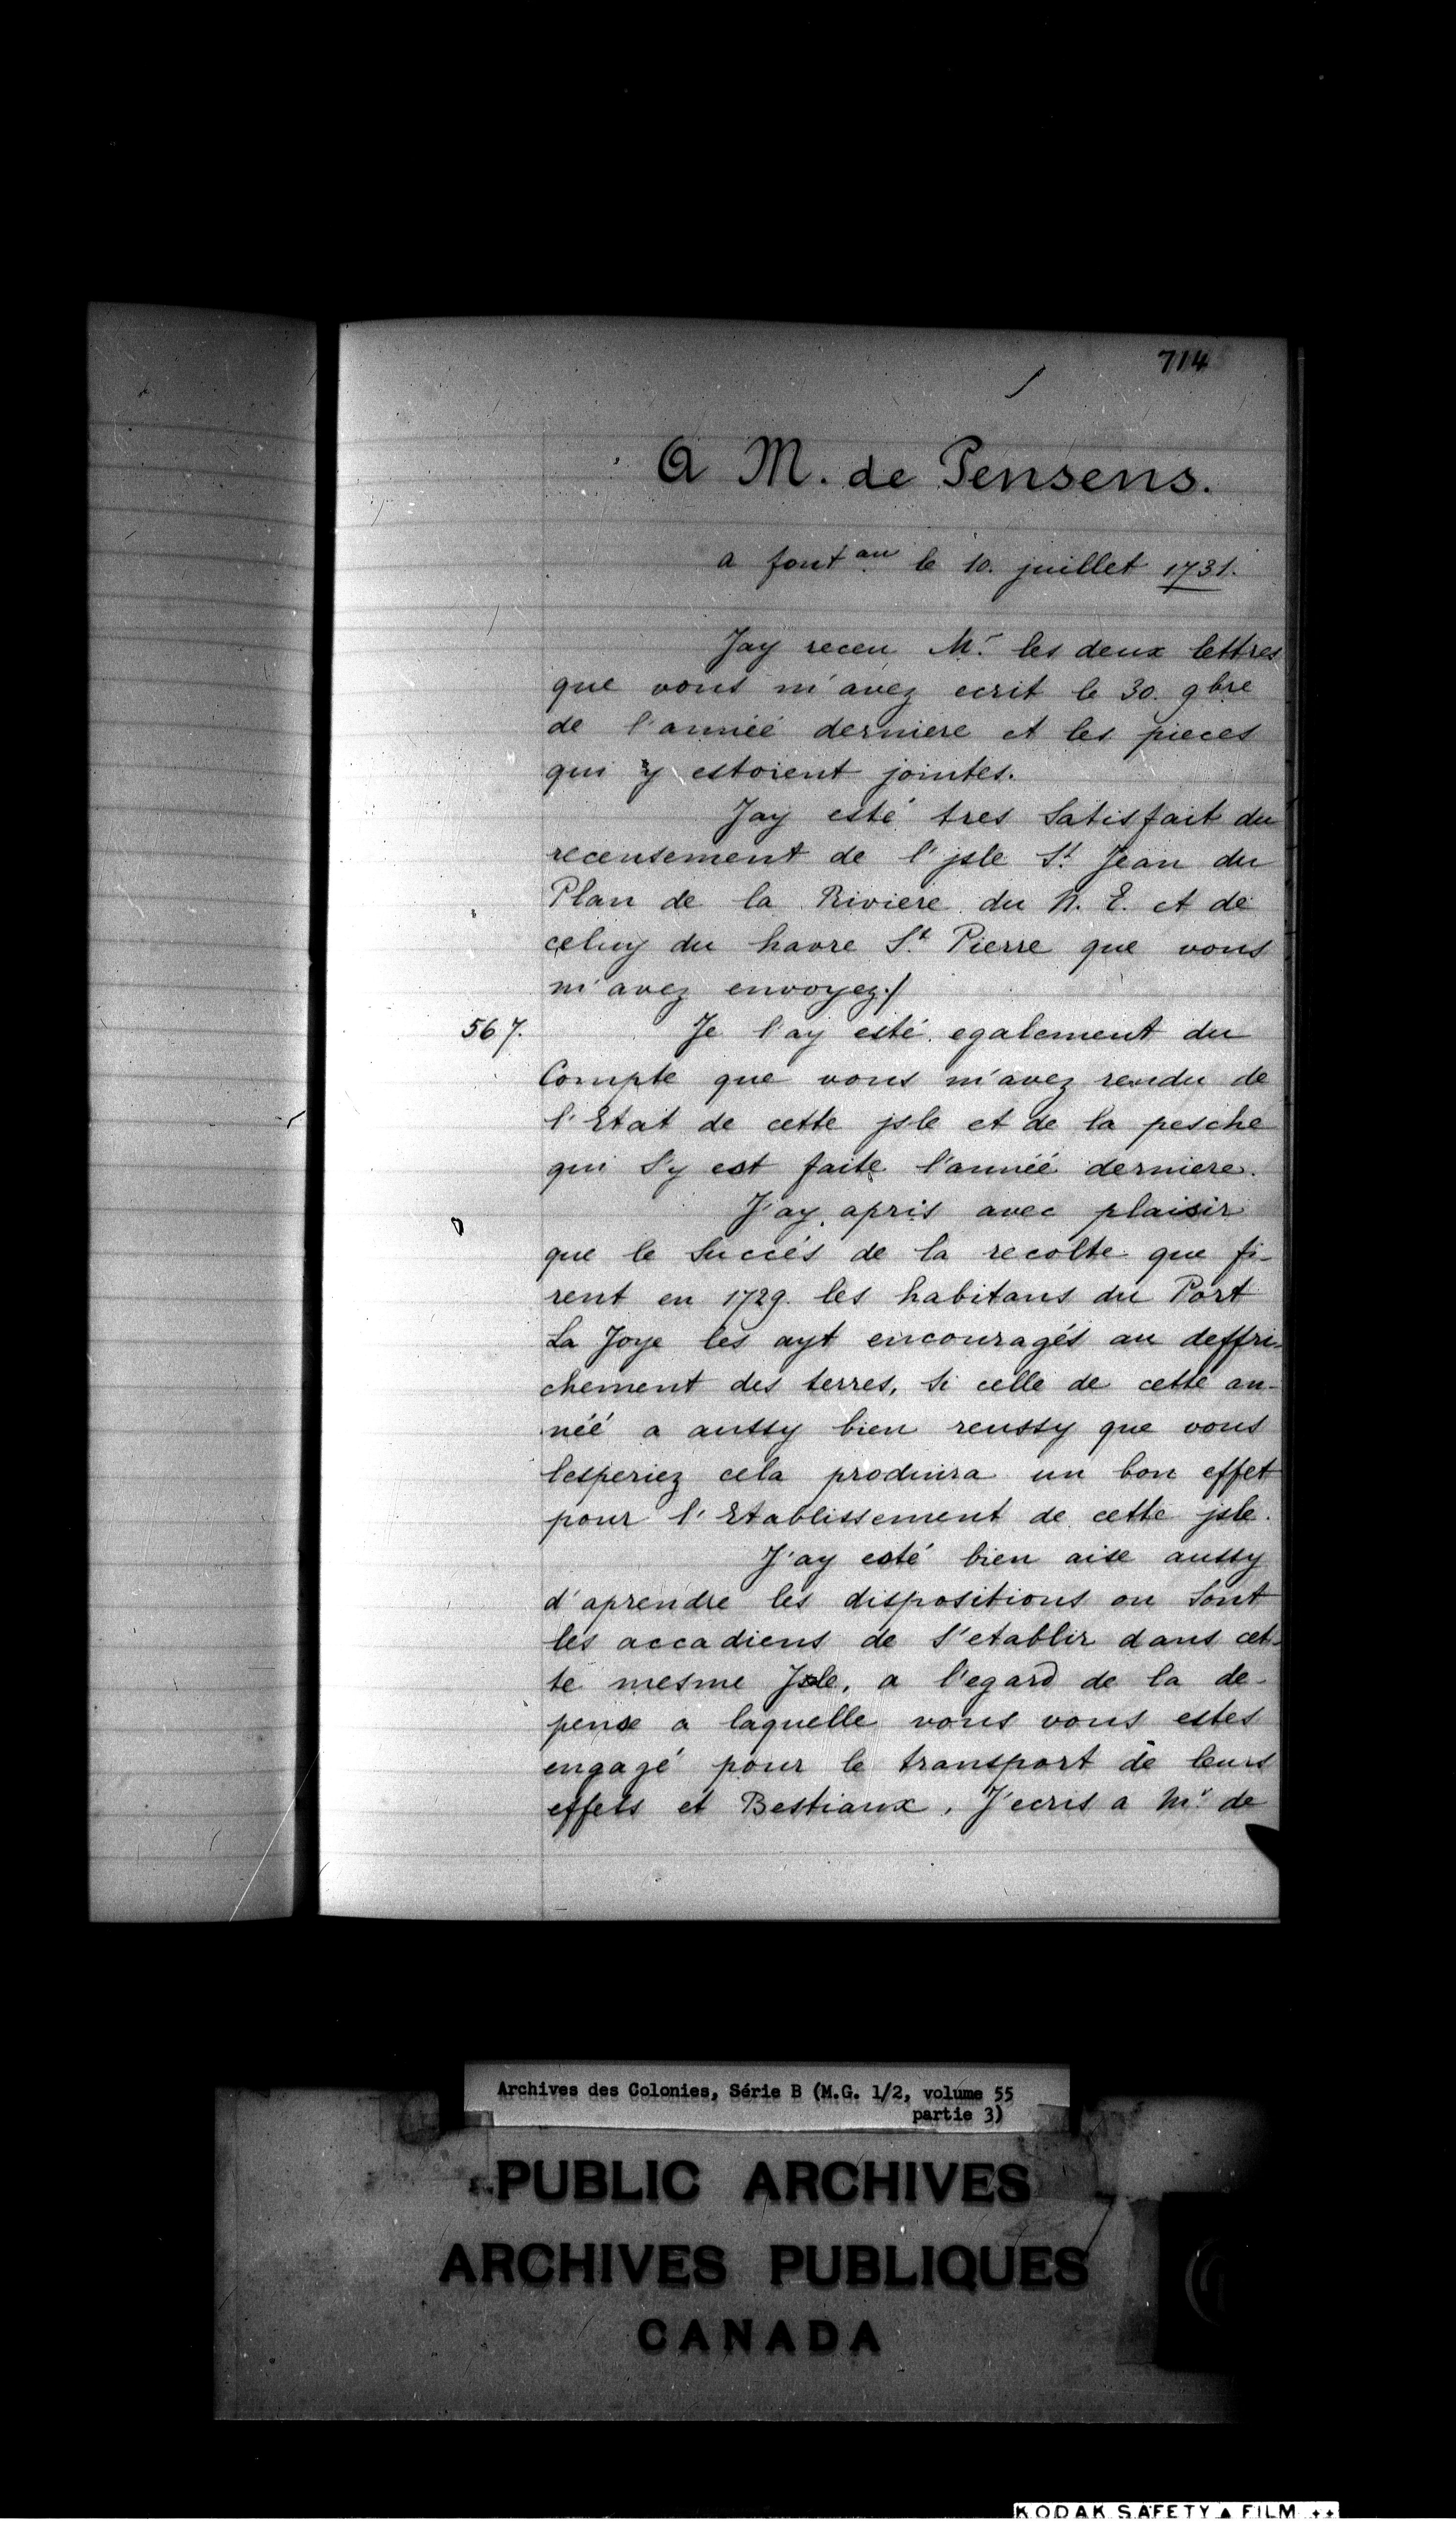 714
A M. de Pensens.
a font au le 10. juillet 1731.
Jay receu Mr. les deux lettres
que vous m'avez ecrit le 30. 9bre
de l'anneé derniere et les pieces
qui y estoient jointes.
Jay esté tres Satisfait du
recensement de l'jsle St. Jean du
Plan de la Riviere du N. E. et de
celuy du havre St. Pierre que vous
m'avez envoyez./
567. Je l'ay esté egalement du
Compte que vous m'avez rendu de
l'Etat de cette jsle et de la pesche
qui S'y est faite l'anneé derniere.
J'ay apris avec plaisir
que le Succés de la recolte que fi-
rent en 1729. les habitans du Port
La Joye les ayt encouragés au deffri-
chement des terres, Si celle de cette an-
neé a aussy bien reussy que vous
lesperiez cela produira un bon effet
pour l'Etablissement de cette jsle.
J'ay esté bien aise aussy
d'aprendre les dispositions ou Sont
les accadiens de S'etablir dans cet-
te mesme Jsle, a l'egard de la de-
pense a laquelle vous vous estes
engagé pour le transport de leurs
effets et Bestiaux, J'ecris a Mr. de
Archives des Colonies, Série B (M.G. 1/2, volume 55
partie 3)
PUBLIC ARCHIVES
ARCHIVES PUBLIQUES
CANADA
KODAK SAFETY ▲ FILM ++